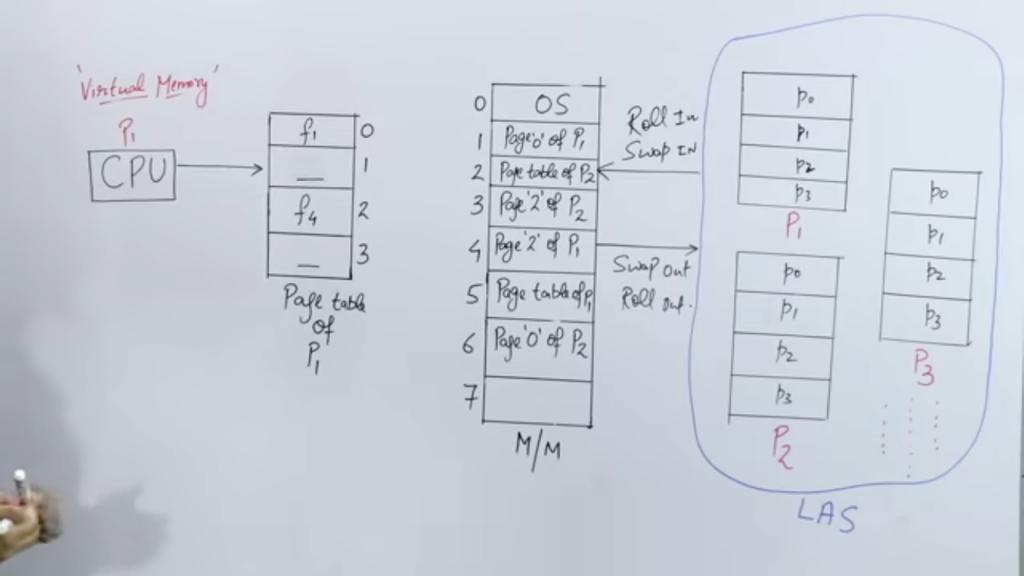 'Virtual Memory'
P1
CPU
f1 0
— 1
f4 2
— 3
Page table
of
P1
0 OS
1 Page '0' of P1
2 Page table of P2
3 Page '2' of P2
4 Page '2' of P1
5 Page table of P1
6 Page '0' of P2
7
M/M
Roll In
Swap IN
Swap out
Roll out.
P0
P1
P2
P3
P1
P0
P1
P2
P3
P2
P0
P1
P2
P3
P3
LAS